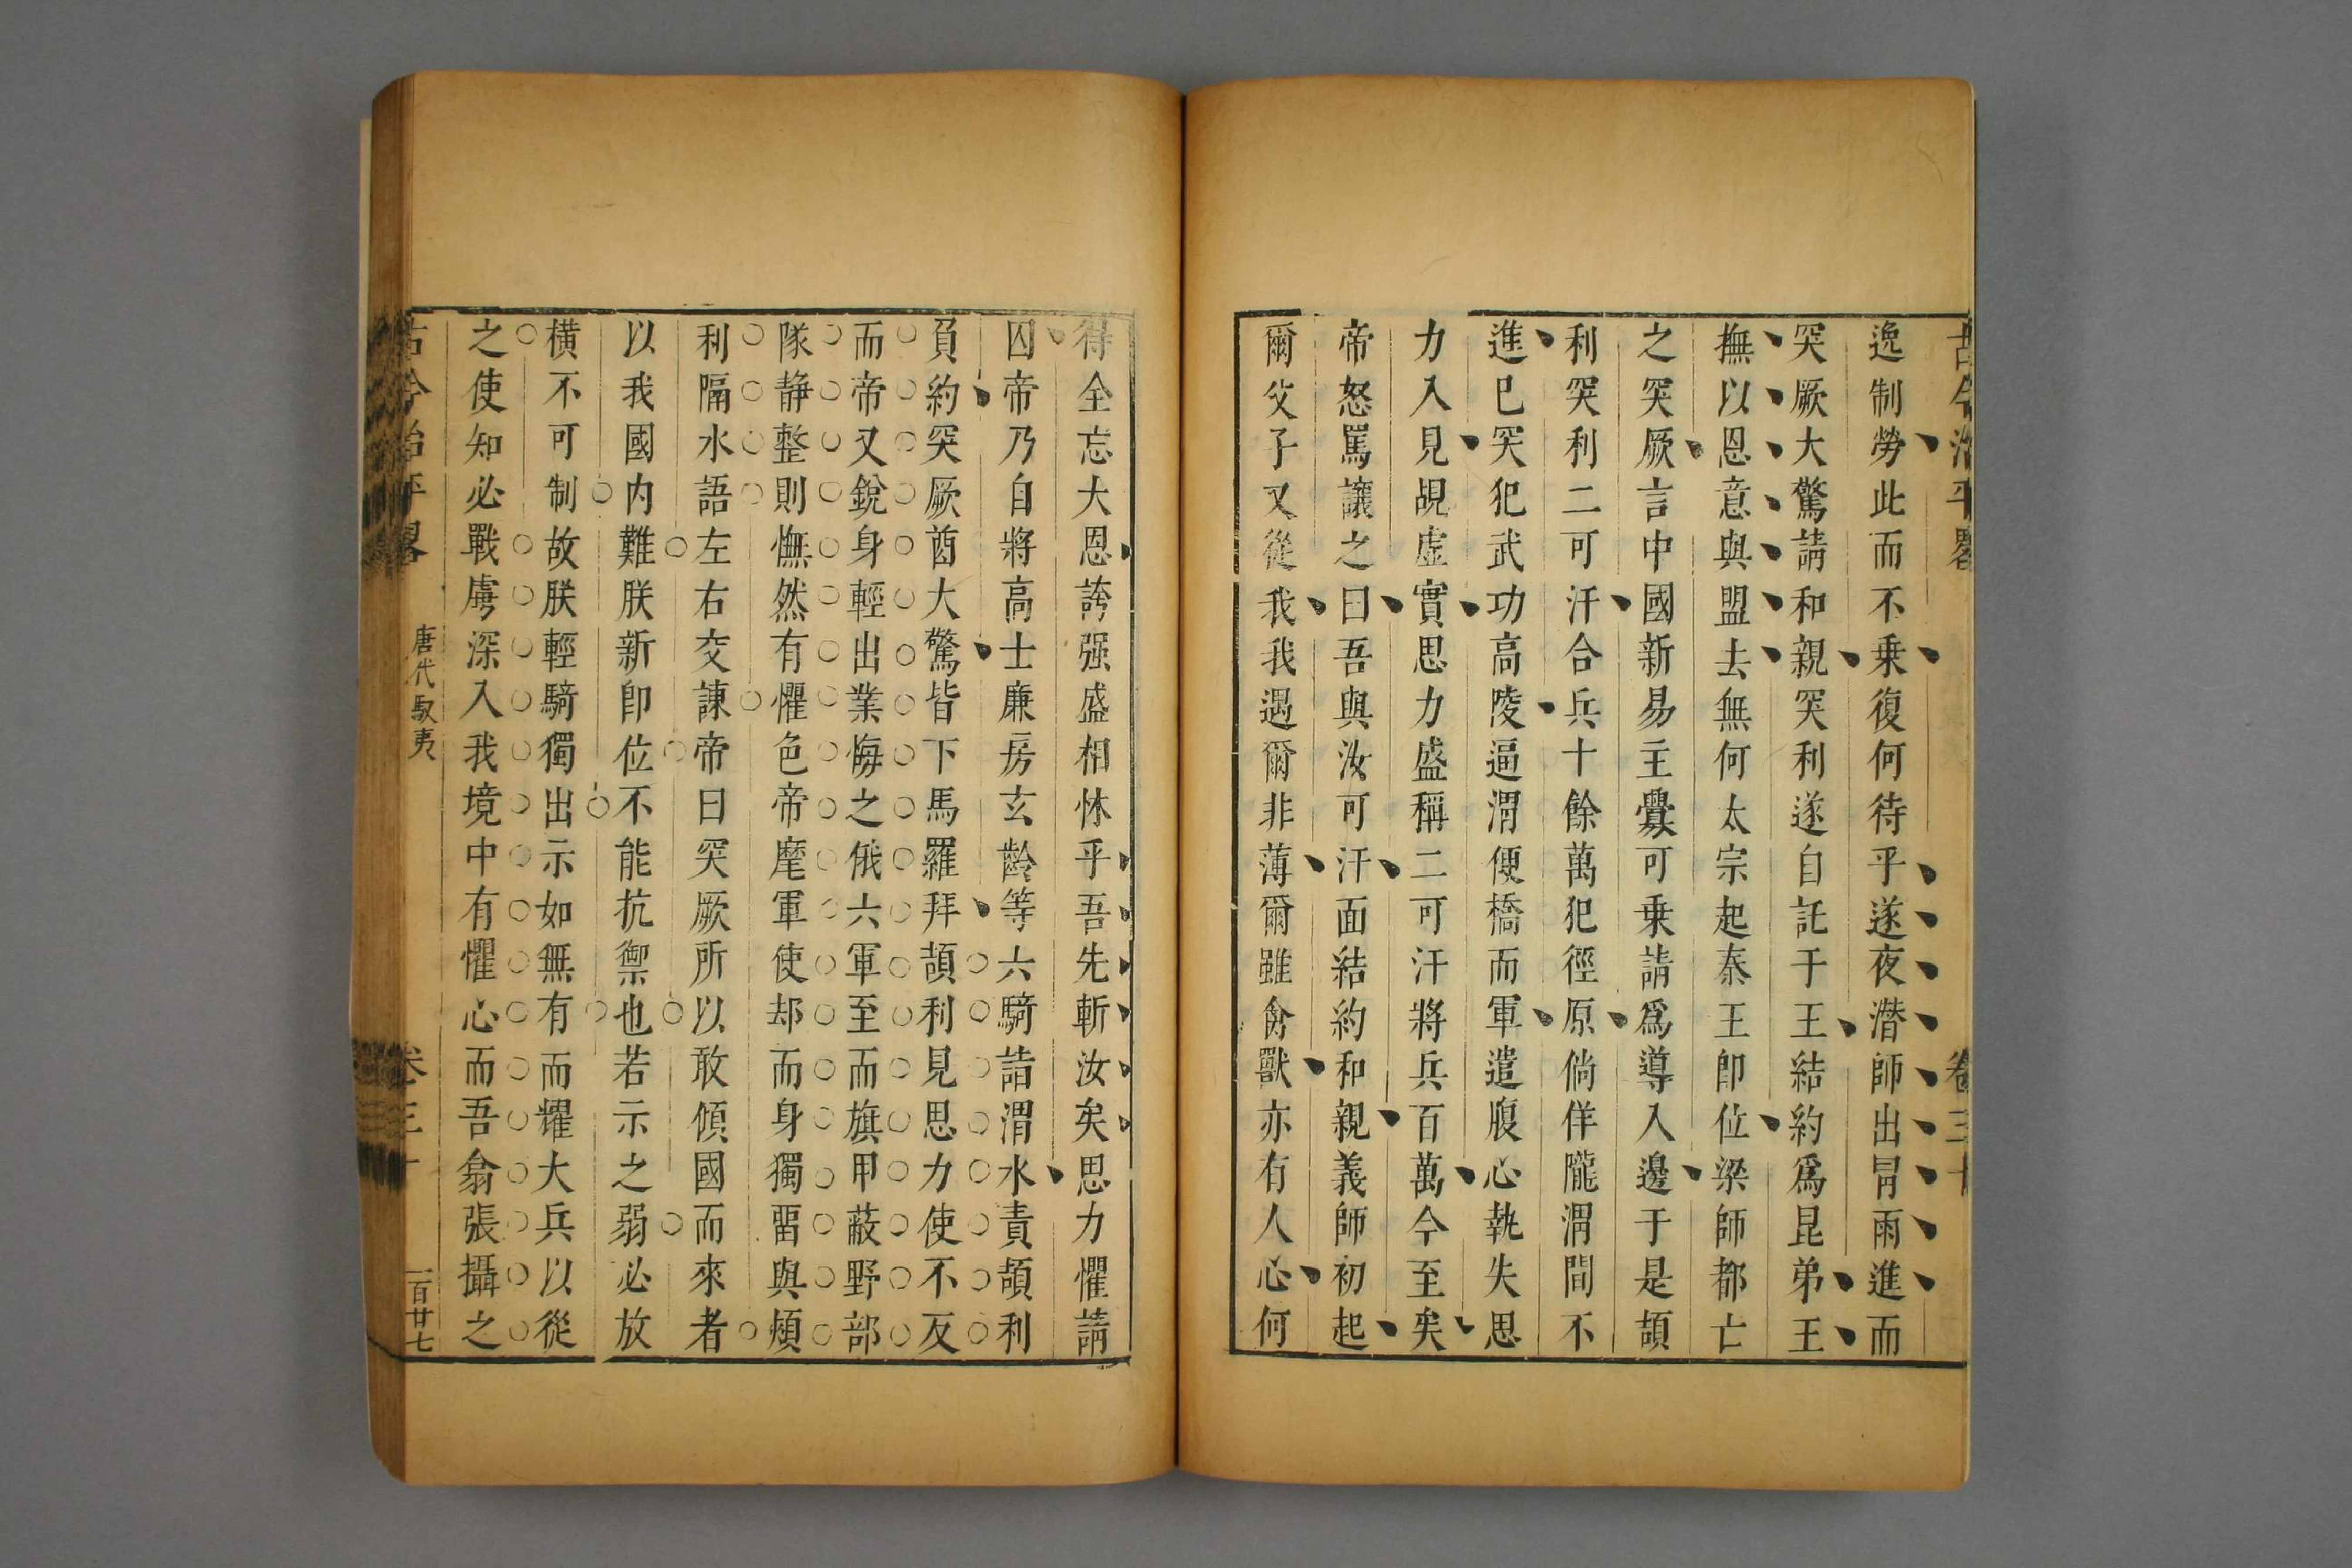 古今治平畧
卷三十
逸制勞此而不乗復何待乎遂夜潛師出冐雨進而
突厥大驚請和親突利遂自託于王結約爲昆弟王
撫以恩意與盟去無何太宗起秦王卽位梁師都亡
之突厥言中國新易主釁可乗請爲導入邊于是頡
利突利二可汗合兵十餘萬犯徑原倘佯隴渭間不
進已突犯武功高陵逼渭便橋而軍遣腹心執失思
力入見覘虛實思力盛稱二可汗將兵百萬今至矣
帝怒罵讓之曰吾與汝可汗面結約和親義師初起
爾父子又從我我遇爾非薄爾雖禽獸亦有人心何
得全忘大恩誇强盛相怵乎吾先斬汝矣思力懼請
囚帝乃自將高士廉房玄齡等六騎詣渭水責頡利
負約突厥酋大驚皆下馬羅拜頡利見思力使不反
而帝又銳身輕出業悔之俄六軍至而旗甲蔽野部
隊静整則憮然有懼色帝麾軍使却而身獨畱與頡
利隔水語左右交諫帝曰突厥所以敢傾國而來者
以我國内難朕新卽位不能抗禦也若示之弱必放
橫不可制故朕輕騎獨出示如無有而耀大兵以從
之使知必戰虜深入我境中有懼心而吾翕張攝之
古今治平畧
唐代馭夷
卷三十
一百廿七